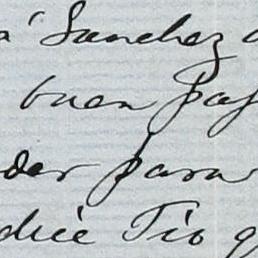 a' Sanchez
buen
der para
dice Tio q